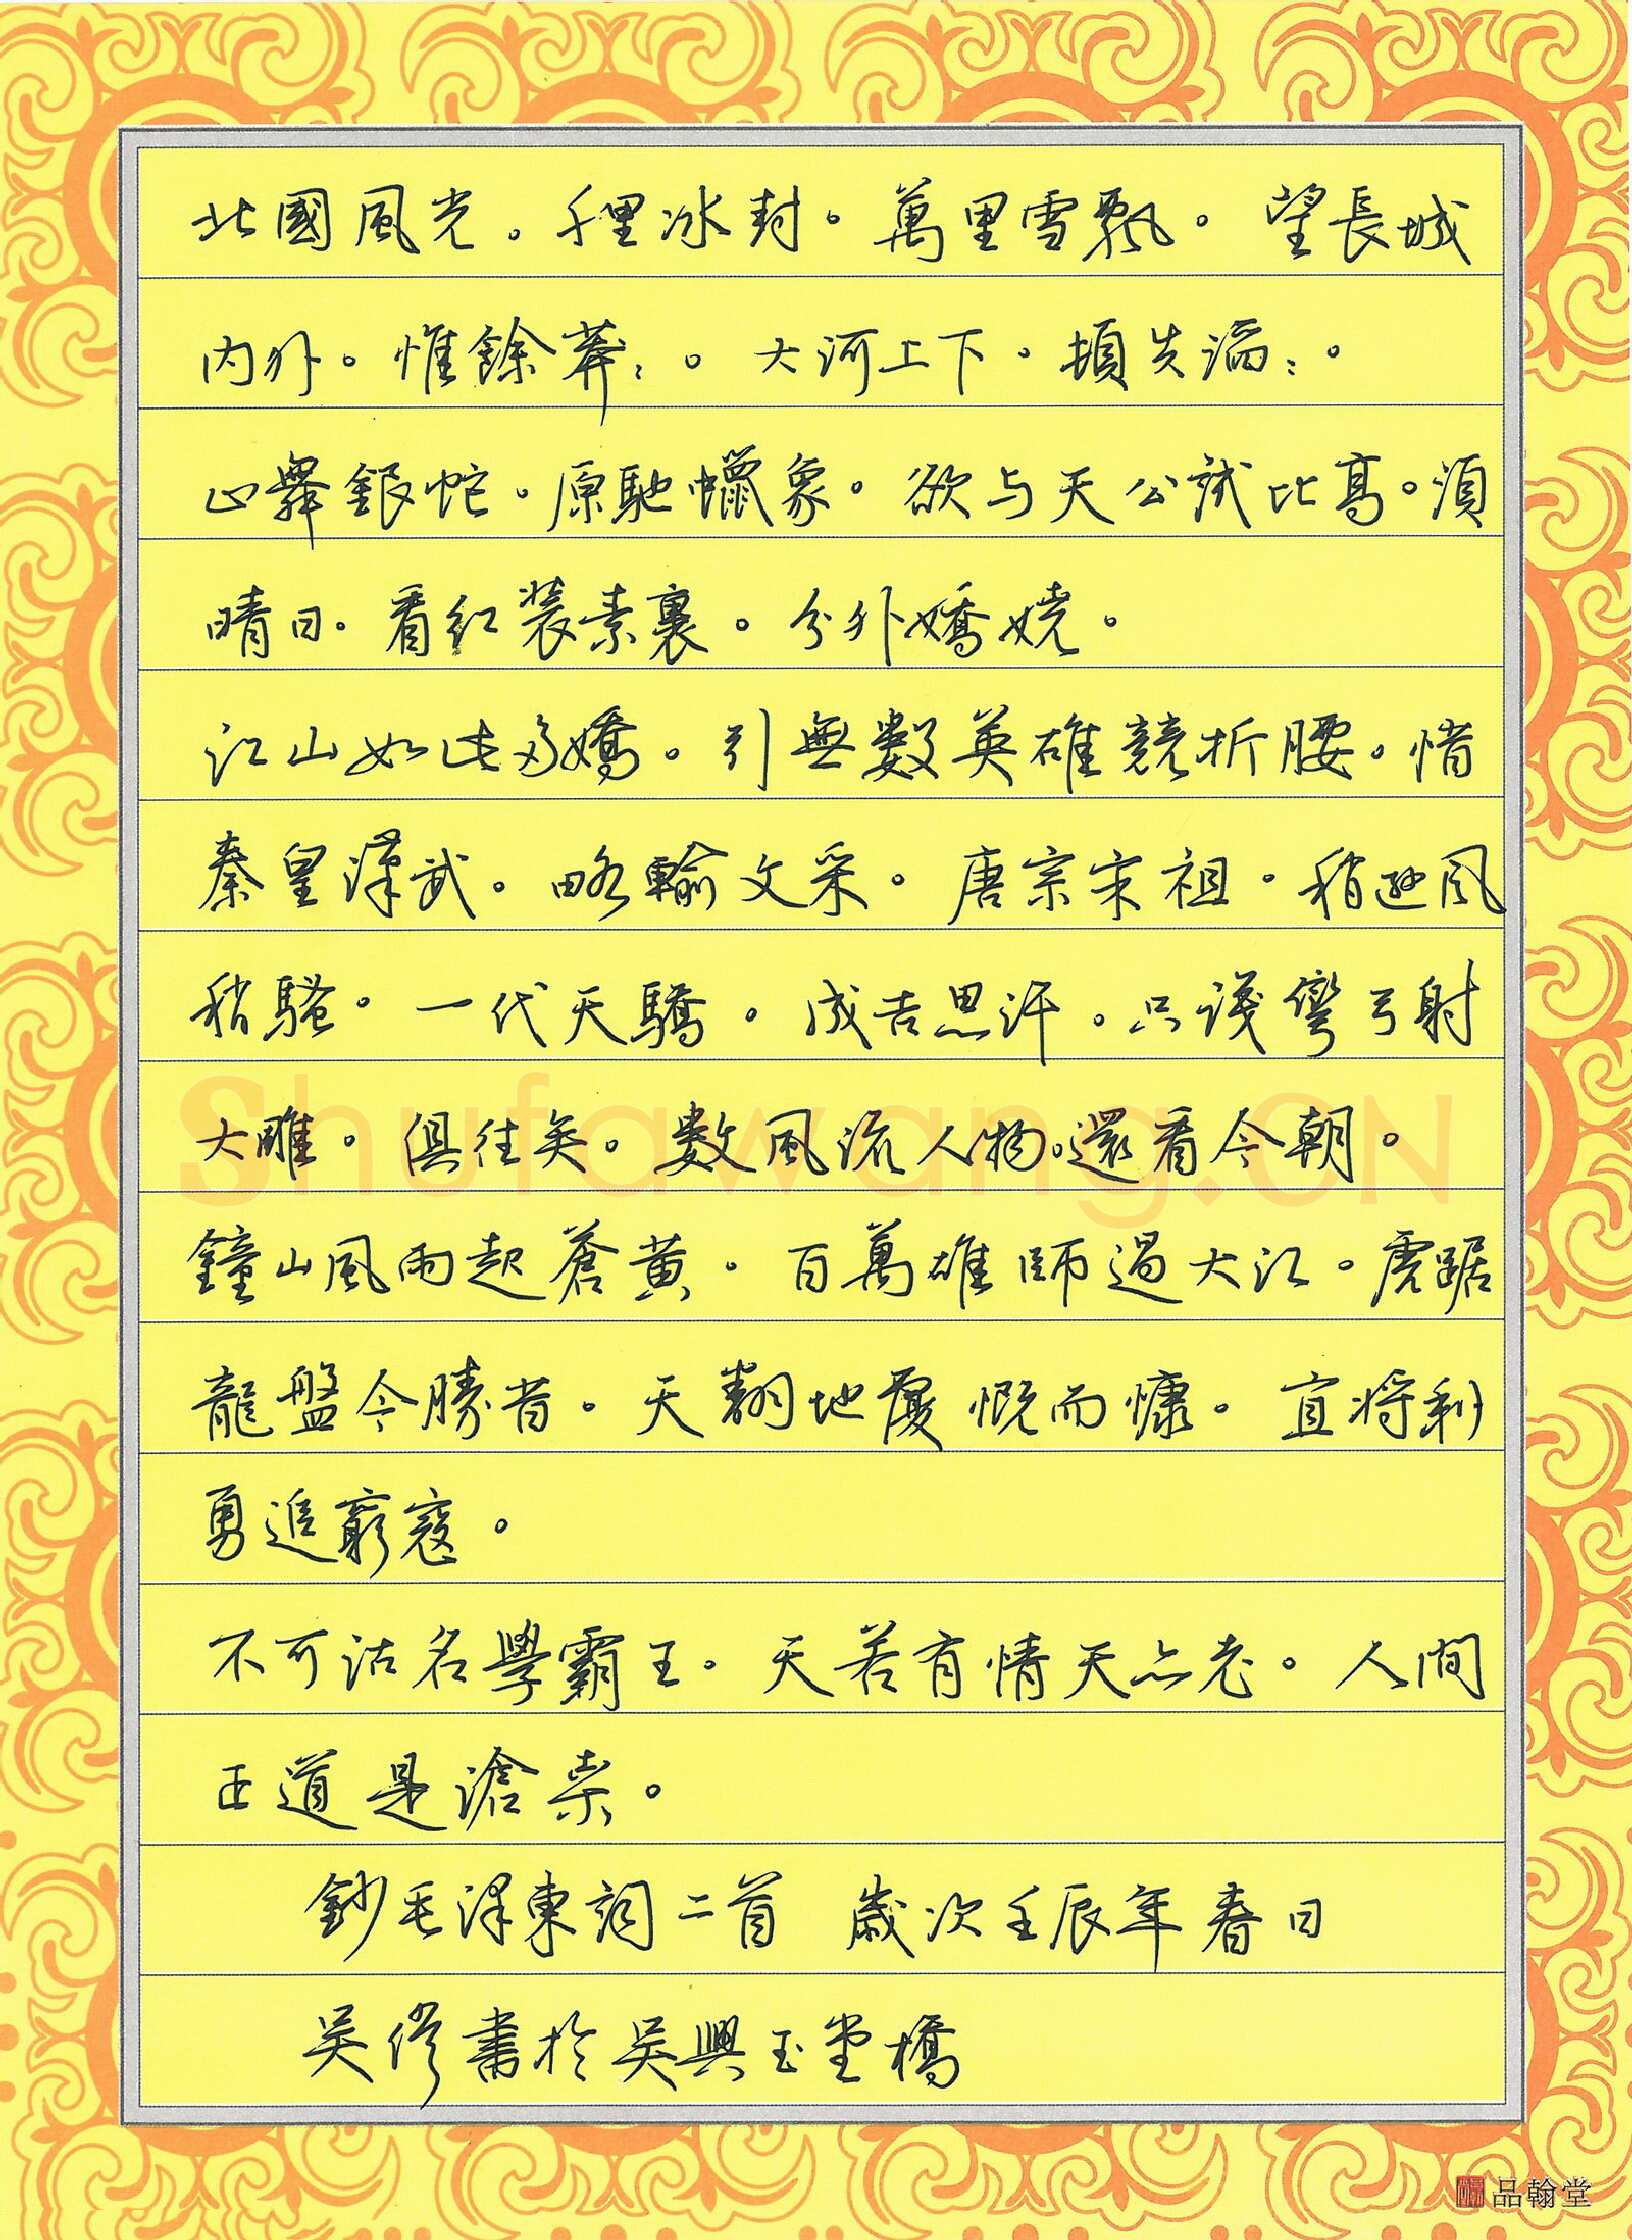 北國風光。千里冰封。萬里雪飄。望長城
内外。惟餘莽:。大河上下。頓失滔:。
山舞銀蛇。原馳蠟象。欲与天公試比高。須
晴日。看红装素裹。分外嬌嬈。
江山如此多嬌。引無數英雄競折腰。惜
秦皇漢武。略輸文采。唐宗宋祖。稍遜風
稍騷。一代天驕。成吉思汗。只識彎弓射
大雕。俱往矣。數風流人物。還看今朝。
shufawang.CN
鐘山風雨起蒼黄。百萬雄師過大江。虎踞
龍盤今勝昔。天翻地覆慨而慷。宜将剩
勇追窮寇。
不可沽名學霸王。天若有情天亦老。人間
正道是滄桑。
鈔毛澤東詞二首 歲次壬辰年春日
吴修書於吴興玉堂橋
品翰堂